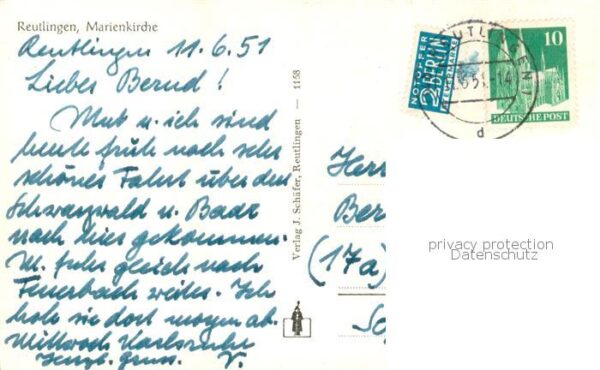 Reutlingen, Marienkirche
Reutlingen 11.6.51
Lieber Bernd!
Mut u. ich sind
heute früh nach sehr
schöner Fahrt über den
Schwarzwald u. Baar
nach hier gekommen.
M. fuhr gleich nach
Feuerbach weiter. Ich
hole sie dort morgen ab.
Mittwoch Karlsruhe
Herzl. Gruss. V.
Verlag J. Schäfer, Reutlingen — 1158
NOTOPFER
2 BERLIN
STEUERMARKE
REUTLINGEN
6.51.-14
d
10
DEUTSCHE POST
Herr
Ber
(17a)
privacy protection
Datenschutz